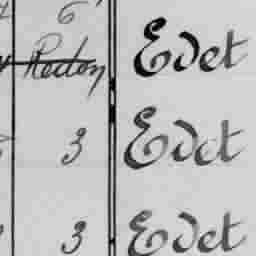 6
Redon Edet
3 Edet
3 Edet